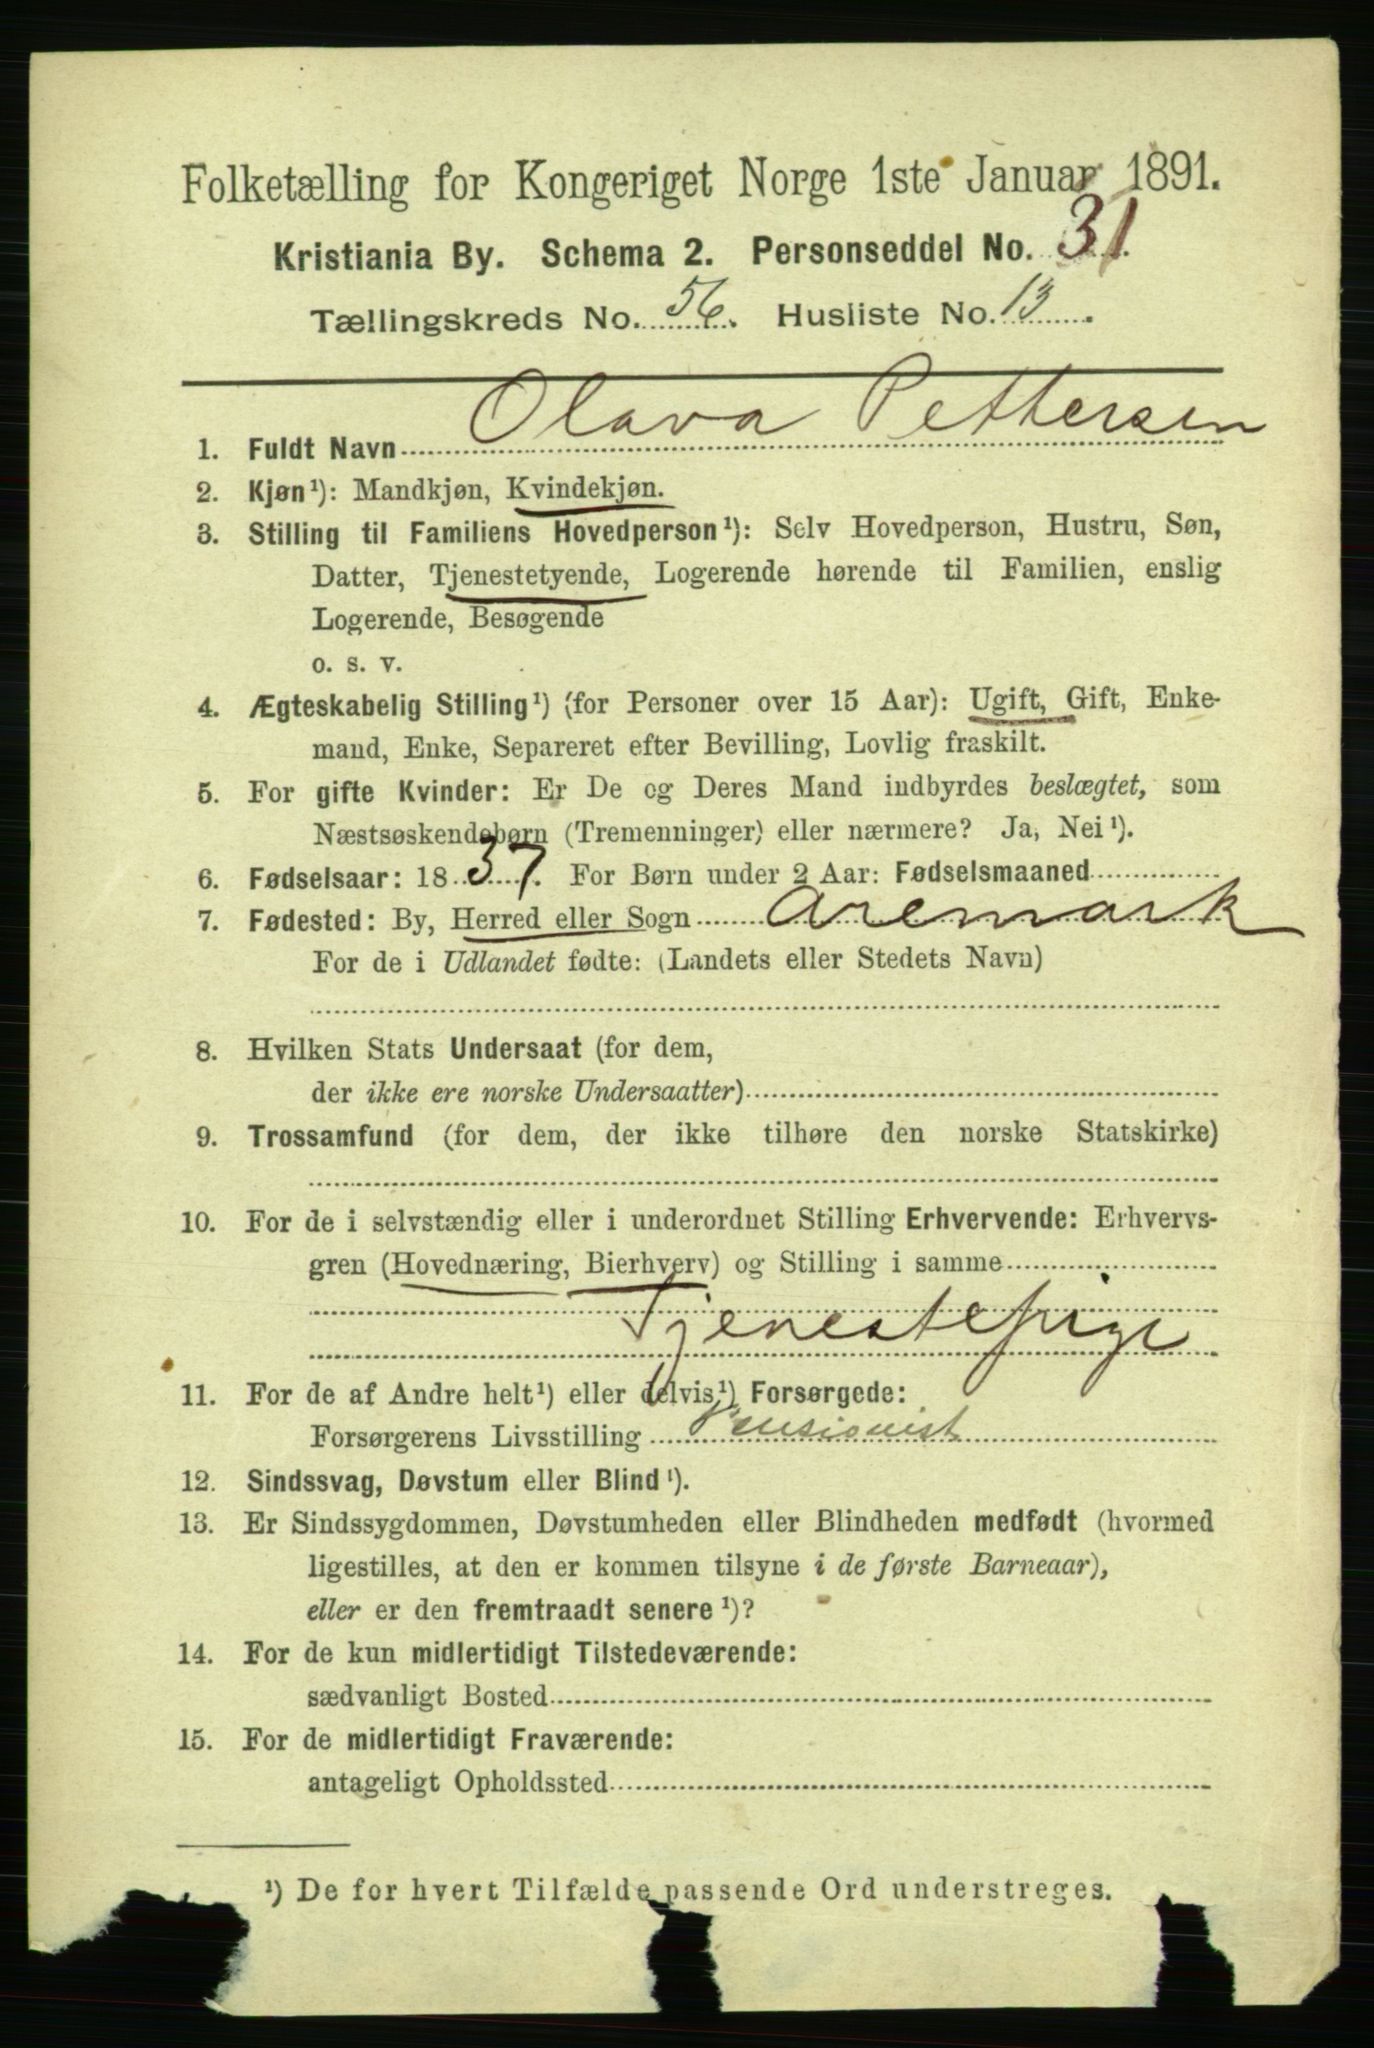 Folketælling for Kongeriget Norge 1ste Januar 1891.
Kristiania By. Schema 2. Personseddel No. 31.
Tællingskreds No. 56. Husliste No. 13.
1. Fuldt Navn Olava Pettersen
2. Kjøn¹): Mandkjøn, Kvindekjøn.
3. Stilling til Familiens Hovedperson¹): Selv Hovedperson, Hustru, Søn,
Datter, Tjenestetyende, Logerende hørende til Familien, enslig
Logerende, Besøgende
o. s. v.
4. Ægteskabelig Stilling¹) (for Personer over 15 Aar): Ugift, Gift, Enke-
mand, Enke, Separeret efter Bevilling, Lovlig fraskilt.
5. For gifte Kvinder: Er De og Deres Mand indbyrdes beslægtet, som
Næstsøskendebørn (Tremenninger) eller nærmere? Ja, Nei¹).
6. Fødselsaar: 1837. For Børn under 2 Aar: Fødselsmaaned
7. Fødested: By, Herred eller Sogn Aremark
For de i Udlandet fødte: (Landets eller Stedets Navn)
8. Hvilken Stats Undersaat (for dem,
der ikke ere norske Undersaatter)
9. Trossamfund (for dem, der ikke tilhøre den norske Statskirke)
10. For de i selvstændig eller i underordnet Stilling Erhvervende: Erhvervs-
gren (Hovednæring, Bierhverv) og Stilling i samme
Tjenestepige
11. For de af Andre helt¹) eller delvis¹) Forsørgede:
Forsørgerens Livsstilling Pensionist
12. Sindssvag, Døvstum eller Blind¹).
13. Er Sindssygdommen, Døvstumheden eller Blindheden medfødt (hvormed
ligestilles, at den er kommen tilsyne i de første Barneaar),
eller er den fremtraadt senere¹)?
14. For de kun midlertidigt Tilstedeværende:
sædvanligt Bosted
15. For de midlertidigt Fraværende:
antageligt Opholdssted
¹) De for hvert Tilfælde passende Ord understreges.